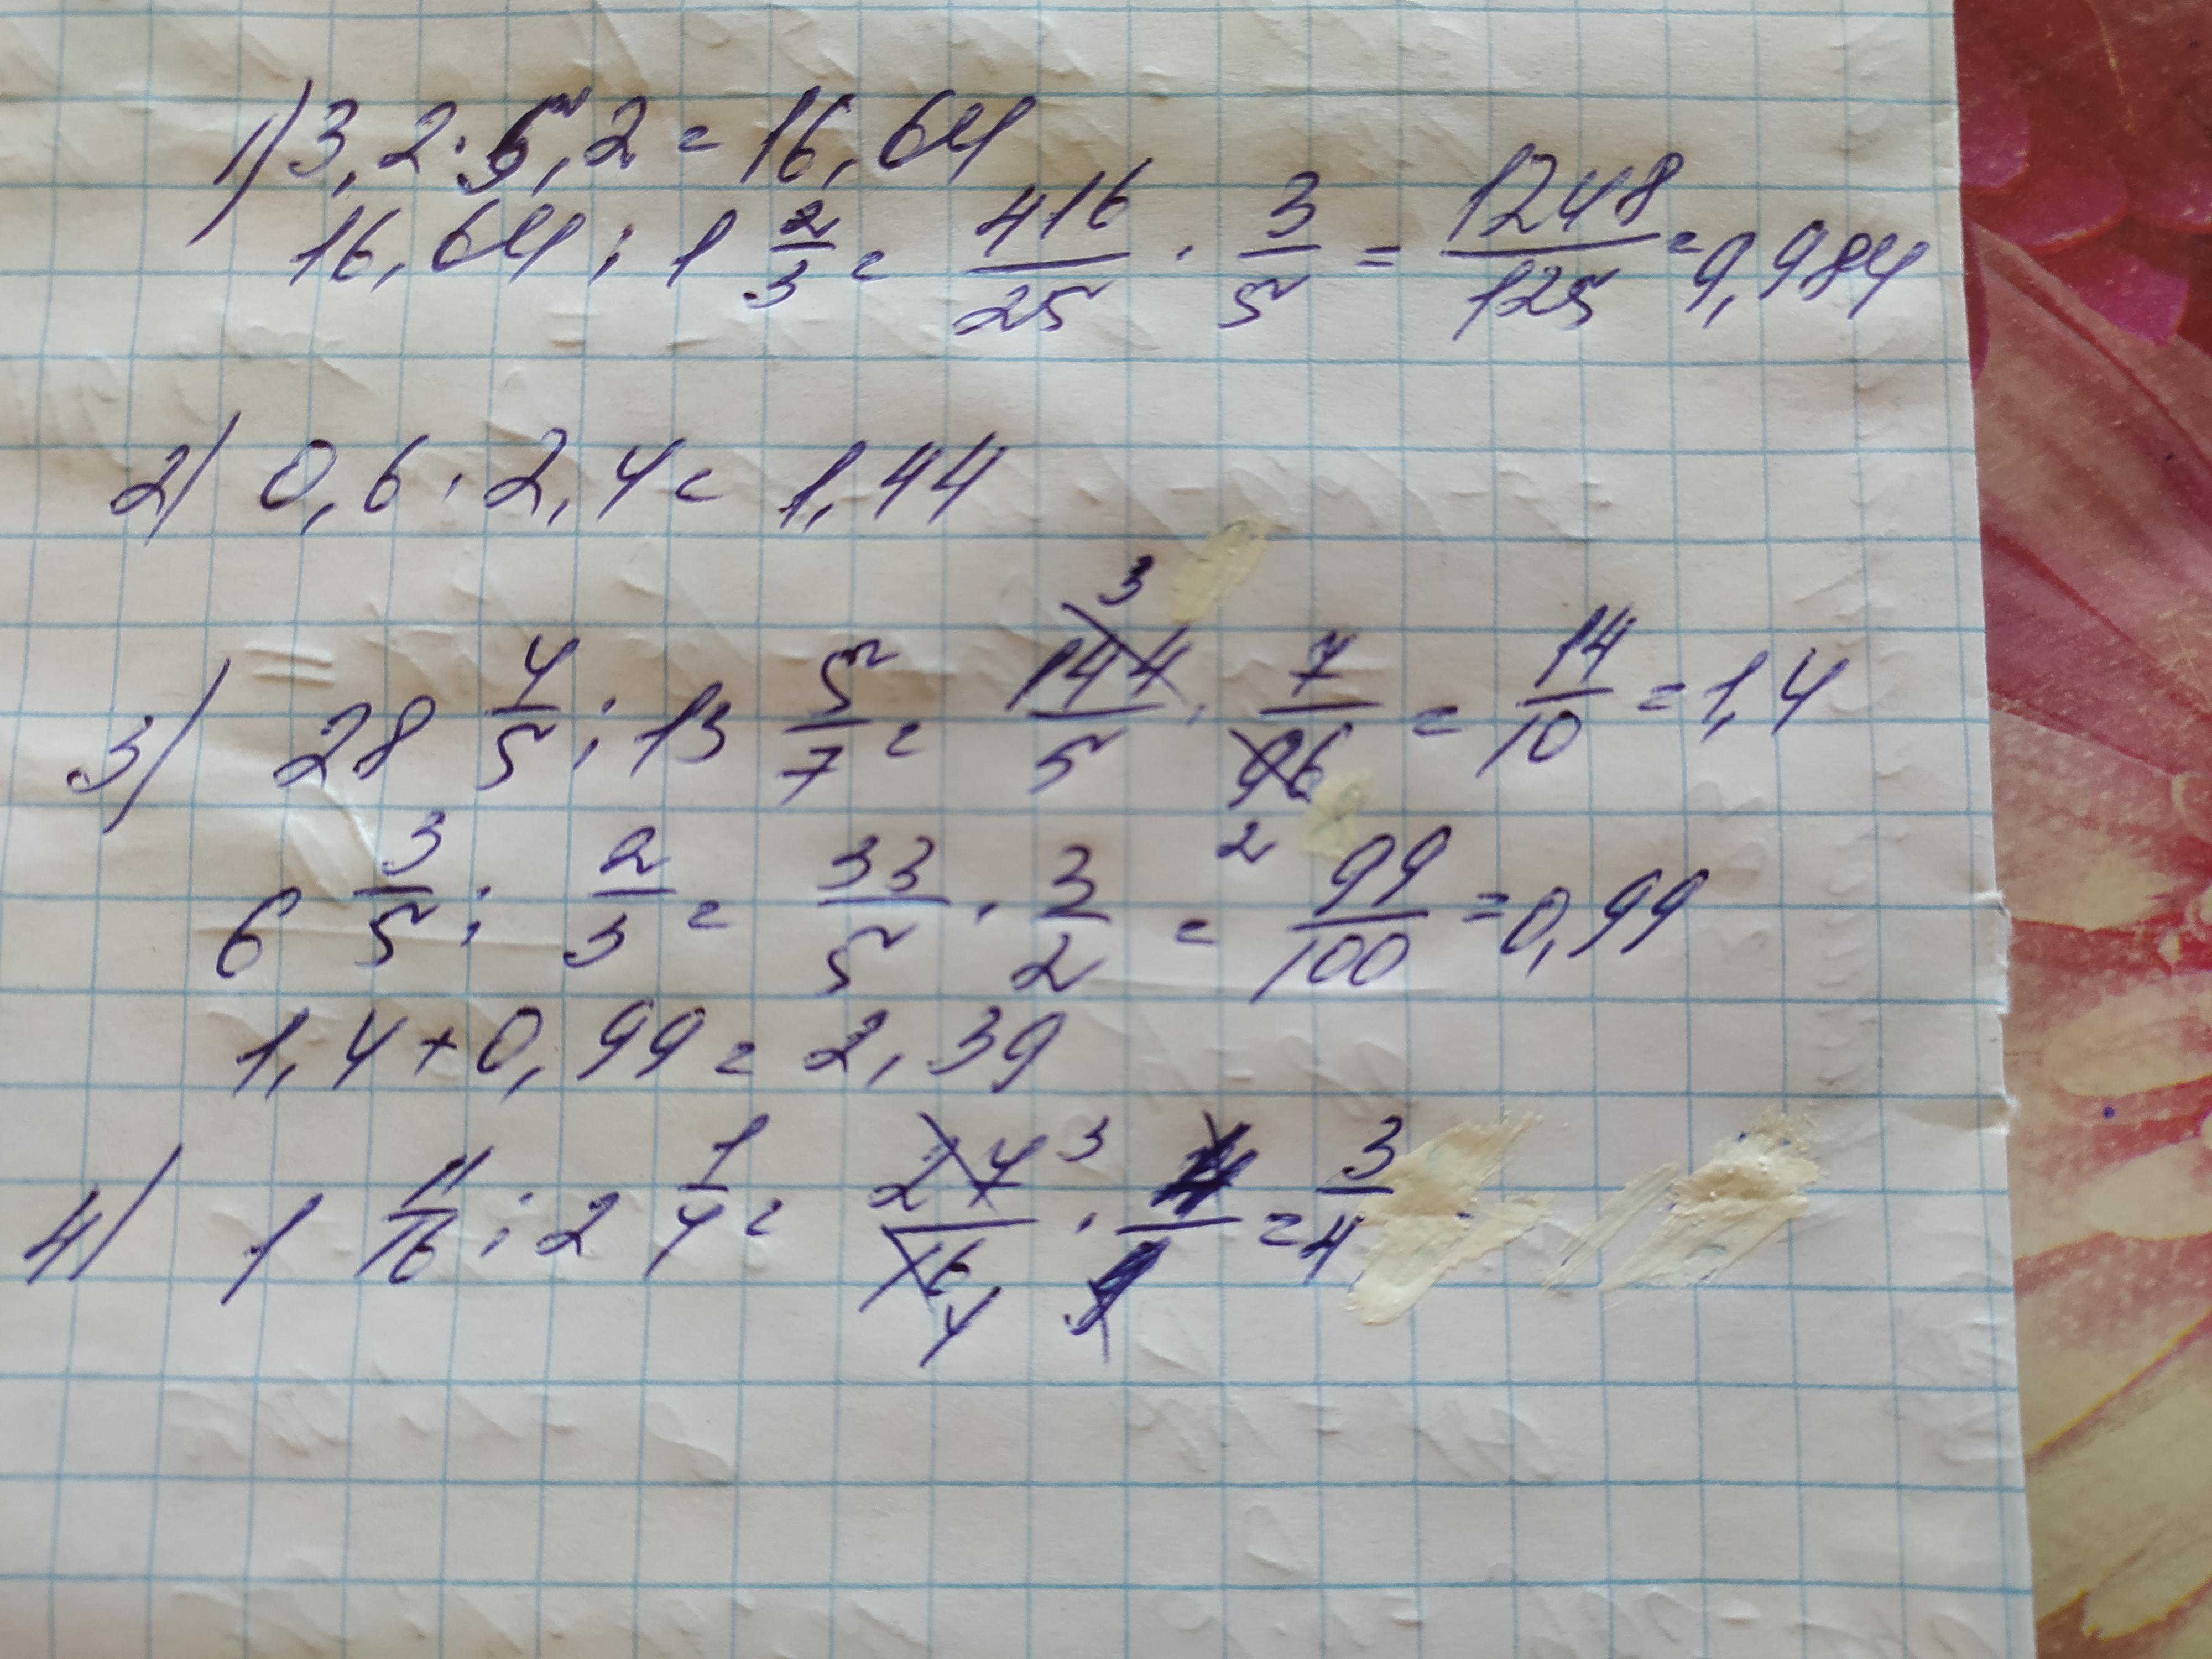 1) 3,2 · 5,2 = 16,64
16,64 : 1 2/3 = 416/25 · 3/5 = 1248/125 = 9,984
2) 0,6 · 2,4 = 1,44
3) 28 4/5 : 13 5/7 = 144/5 3 · 7/96 2 = 14/10 = 1,4
6 3/5 : 2/3 = 33/5 · 3/2 = 99/100 = 0,99
1,4 + 0,99 = 2,39
4) 1 11/16 : 2 1/4 = 27/16 3 4 · 4/9 = 3/4